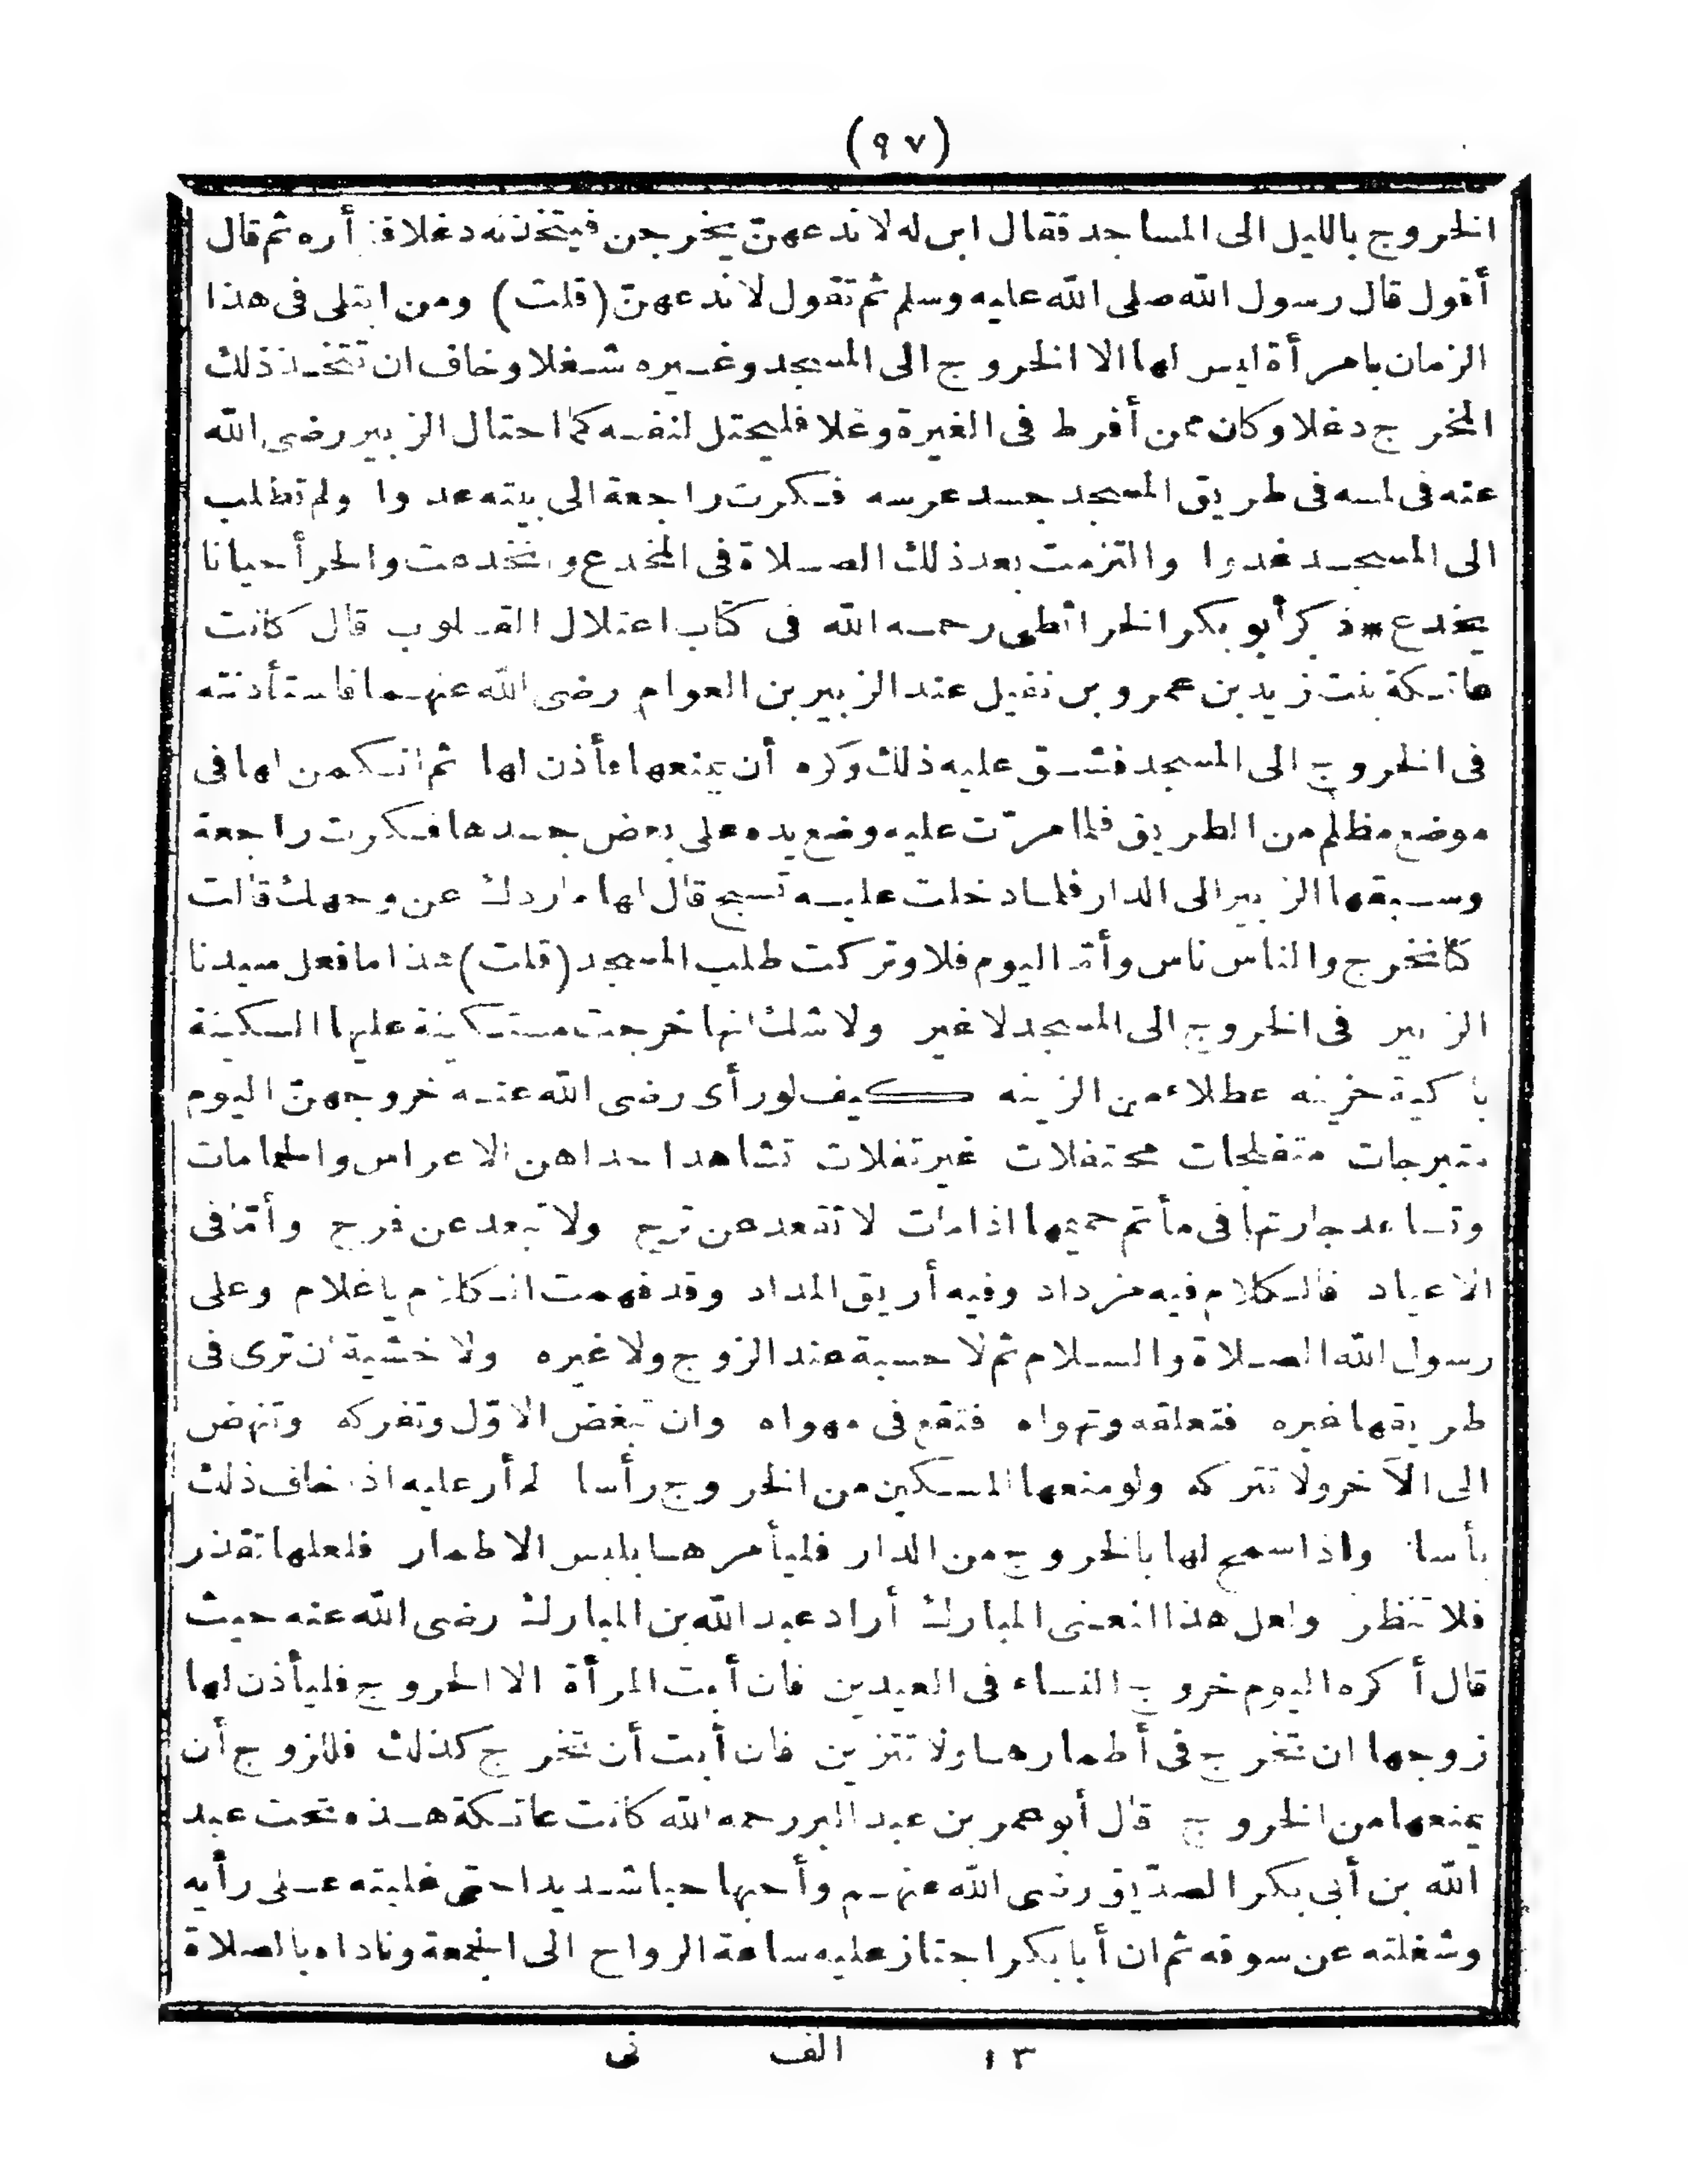 (٩٧)
الخروج بالليل الى المساجد فقال ابن له لا ندعهنّ يخرجن فيتخذنه دغلا فزأره ثم قال
أقول قال رسول الله صلى الله عليه وسلم ثم تقول لا ندعهنّ (قلت) ومن ابتلى فى هذا
الزمان بامرأة ليس لها الا الخروج الى المسجد وغيره شغلا وخاف ان تتخذ ذلك
المخرج دغلا وكان ممن أفرط فى الغيرة وغلا فليحتل لنفسه كما احتال الزبير رضى الله
عنه فى لمسه فى طريق المسجد جسد عرسه فكرت راجعة الى بيته عدوا ولم تطلب
الى المسجد غدوا والتزمت بعد ذلك الصلاة فى المخدع وانخدعت والحر أحيانا
يخدع * ذكر أبو بكر الخرائطى رحمه الله فى كتاب اعتلال القلوب قال كانت
عاتكة بنت زيد بن عمرو بن نفيل عند الزبير بن العوام رضى الله عنهما فاستأذنته
فى الخروج الى المسجد فشق عليه ذلك وكره أن يمنعها فأذن لها ثم انكمن لها فى
موضع مظلم من الطريق فلما مرّت عليه وضع يده على بعض جسدها فكرت راجعة
وسبقها الزبير الى الدار فلما دخلت عليه تسبح قال لها ما ردك عن وجهك قالت
كنا نخرج والناس ناس وأما اليوم فلا وتركت طلب المسجد (قلت) هذا ما فعل سيدنا
الزبير فى الخروج الى المسجد لا غير ولا شك انها خرجت مستكينة عليها السكينة
باكية حزينه عطلاء من الزينه كيف لو رأى رضى الله عنه خروجهنّ اليوم
متبرجات متفطحات محتفلات غير تفلات تشاهد احداهن الاعراس والحمامات
وتساعد جارتها فى مأتم حميمها اذا مات لا تقعد عن ترح ولا تبعد عن فرح وأما فى
الاعياد فالكلام فيه مزداد وفيه أريق المداد وقد فهمت الكلام يا غلام وعلى
رسول الله الصلاة والسلام ثم لا حسبة عند الزوج ولا غيره ولا خشية ان ترى فى
طريقها غيره فتعلقه وتهواه فتقع فى مهواه وان تبغض الاوّل وتفركه وتنهض
الى الآخر ولا تتركه ولو منعها المسكين من الخروج رأسا لم أر عليه اذا خاف ذلك
بأسا واذا سمح لها بالخروج من الدار فليأمرها بلبس الاطمار فلعلها تقذر
فلا تنظر ولعل هذا المعنى المبارك أراد عبد الله بن المبارك رضى الله عنه حيث
قال أكره اليوم خروج النساء فى العيدين فان أبت المرأة الا الخروج فليأذن لها
زوجها ان تخرج فى أطمارها ولا تتزين فان أبت أن تخرج كذلك فللزوج أن
يمنعها من الخروج قال أبو عمر بن عبد البر رحمه الله كانت عاتكة هذه تحت عبد
الله بن أبى بكر الصدّيق رضى الله عنهم وأحبها حبا شديدا حتى غلبته على رأيه
وشغلته عن سوقه ثم ان أبا بكر اجتاز عليه ساعة الرواح الى الجمعة وناداه بالصلاة
١٣ الف نى